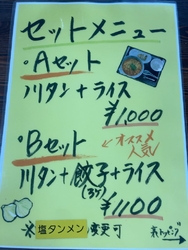 セットメニュー
・Aセット
川タン+ライス
¥1,000
・Bセット
オススメ
人気!
川タン+餃子+ライス
(3ケ)
¥1,100
※塩タンメン変更可